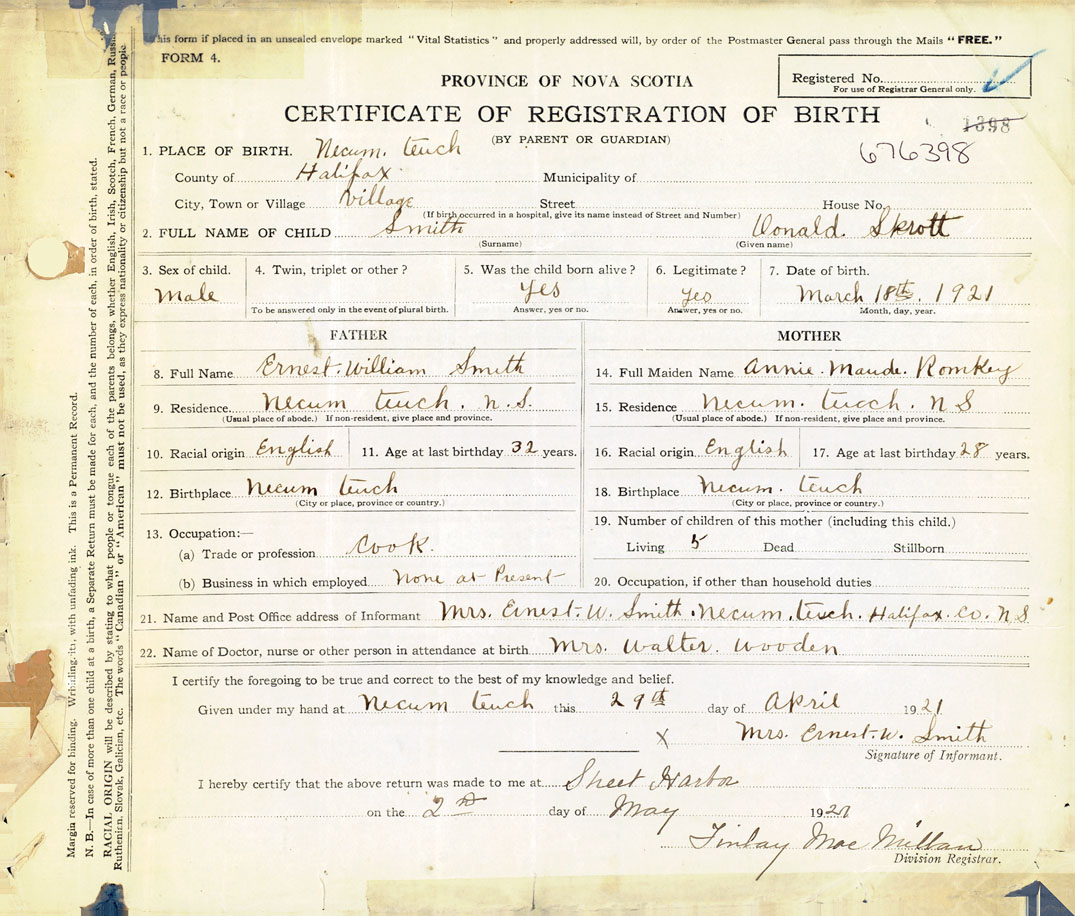 This form if placed in an unsealed envelope marked "Vital Statistics" and properly addressed will, by order of the Postmaster General pass through the Mails "FREE."
FORM 4.
Registered No.
For use of Registrar General only.
PROVINCE OF NOVA SCOTIA
CERTIFICATE OF REGISTRATION OF BIRTH
1398
(BY PARENT OR GUARDIAN)
676398
1. PLACE OF BIRTH. Necum. teuch
County of Halifax Municipality of
City, Town or Village Village Street House No.
(If birth occurred in a hospital, give its name instead of Street and Number)
2. FULL NAME OF CHILD Smith Donald Skrott
(Surname) (Given name)
3. Sex of child. 4. Twin, triplet or other? 5. Was the child born alive? 6. Legitimate? 7. Date of birth.
Male yes yes March 18th. 1921
To be answered only in the event of plural birth. Answer, yes or no. Answer, yes or no. Month, day, year.
FATHER MOTHER
8. Full Name Ernest. William Smith 14. Full Maiden Name Annie. Maude. Romkey
9. Residence Necum teuch. N.S. 15. Residence Necum. teuch. N S
(Usual place of abode.) If non-resident, give place and province. (Usual place of abode.) If non-resident, give place and province.
10. Racial origin English 11. Age at last birthday 32 years. 16. Racial origin English 17. Age at last birthday 28 years.
12. Birthplace Necum teuch 18. Birthplace Necum. teuch
(City or place, province or country.) (City or place, province or country.)
13. Occupation:— 19. Number of children of this mother (including this child.)
(a) Trade or profession Cook. Living 5 Dead Stillborn
(b) Business in which employed None at Present 20. Occupation, if other than household duties
21. Name and Post Office address of Informant Mrs. Ernest. W. Smith. Necum. teuch. Halifax. Co. N.S
22. Name of Doctor, nurse or other person in attendance at birth Mrs. Walter. Wooden
I certify the foregoing to be true and correct to the best of my knowledge and belief.
Given under my hand at Necum teuch this 29th day of April 1921
X Mrs. Ernest. W. Smith
Signature of Informant.
I hereby certify that the above return was made to me at Sheet Harbor
on the 2nd day of May 1921
Finlay MacMillan
Division Registrar.
Margin reserved for binding. Write plainly, with unfading ink. This is a Permanent Record.
N. B.—In case of more than one child at a birth, a Separate Return must be made for each, and the number of each, in order of birth, stated.
RACIAL ORIGIN will be described by stating to what people or tongue each of the parents belongs, whether English, Irish, Scotch, French, German, Russ
Ruthenian, Slovak, Galician, etc. The words "Canadian" or "American" must not be used, as they express nationality or citizenship but not a race or people.